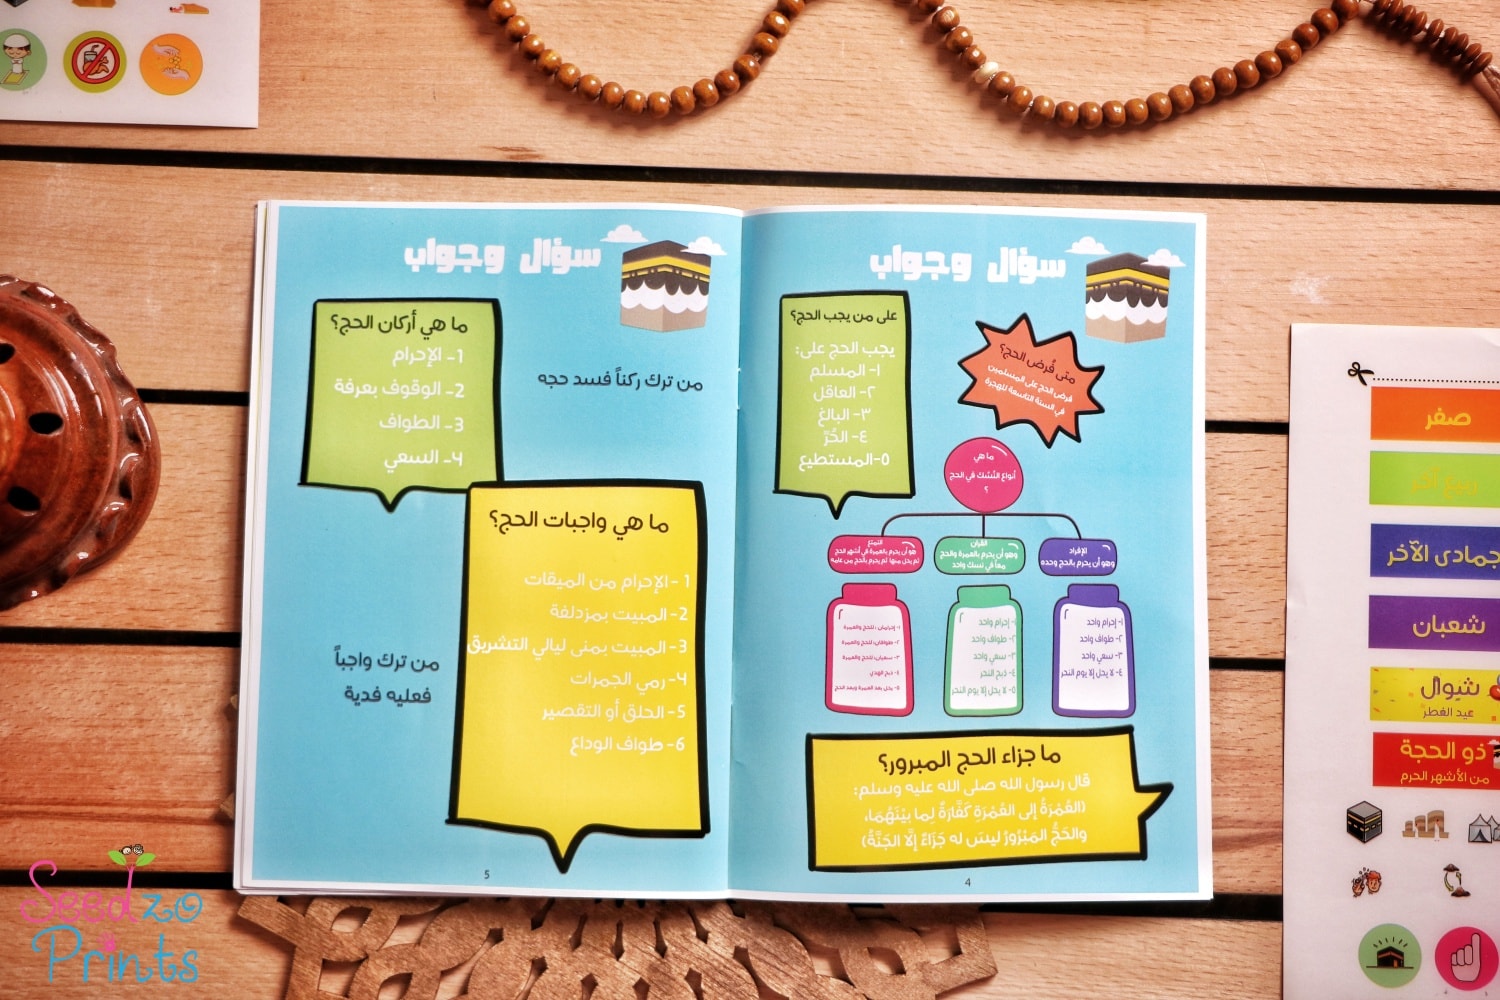 سؤال وجواب
على من يجب الحج؟
يجب الحج على:
١- المسلم
٢- العاقل
٣- البالغ
٤- الحُرّ
٥-المستطيع
متى فُرض الحج؟
فرض الحج على المسلمين
في السنة التاسعة للهجرة
ما هي
أنواع النُسُك في الحج
؟
الإفراد
وهو أن يحرم بالحج وحده
القران
وهو أن يحرم بالعمرة والحج
معاً في نسك واحد
التمتع
هو أن يحرم بالعمرة في أشهر الحج
ثم يحل منها ثم يحرم بالحج من عامه
١- إحرام واحد
٢- طواف واحد
٣- سعي واحد
٤- لا يحل إلا يوم النحر
١- إحرام واحد
٢- طواف واحد
٣- سعي واحد
٤- ذبح النحر
٥- لا يحل إلا يوم النحر
١- إحرامان ، للحج والعمرة
٢- طوافان، للحج والعمرة
٣- سعيان، للحج والعمرة
٤- ذبح الهدي
٥- يحل بعد العمرة وبعد الحج
ما جزاء الحج المبرور؟
قال رسول الله صلى الله عليه وسلم:
(العُمْرَةُ إلى العُمْرَةِ كَفَّارَةٌ لِما بيْنَهُمَا،
والحَجُّ المَبْرُورُ ليسَ له جَزَاءٌ إلَّا الجَنَّةُ)
4
سؤال وجواب
ما هي أركان الحج؟
1- الإحرام
2- الوقوف بعرفة
3- الطواف
4- السعي
من ترك ركناً فسد حجه
ما هي واجبات الحج؟
1 -الإحرام من الميقات
2- المبيت بمزدلفة
3- المبيت بمنى ليالي التشريق
4- رمي الجمرات
5- الحلق أو التقصير
6- طواف الوداع
من ترك واجباً
فعليه فدية
5
صفر
ربيع آخر
جمادى الآخر
شعبان
شوال
عيد الفطر
ذو الحجة
من الأشهر الحرم
Seedzo
Prints